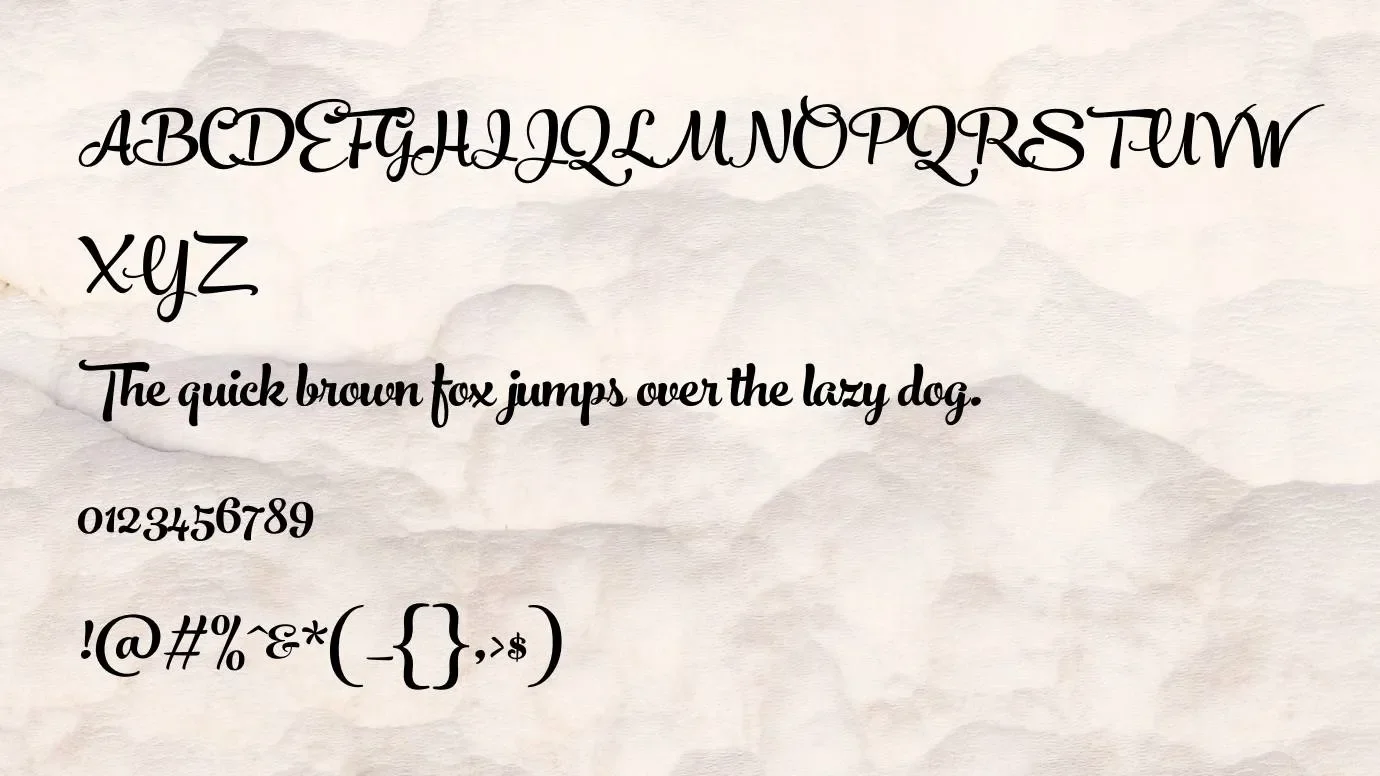 ABCDEFGHIJQLMNOPQRSTUVW
XYZ
The quick brown fox jumps over the lazy dog.
0123456789
!@#%^&*(_{},>$)